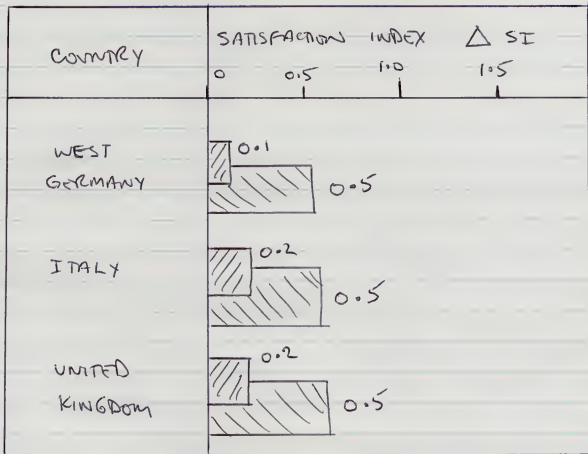 COUNTRY
SATISFACTION INDEX △ SI
0 0.5 1.0 1.5
WEST
GERMANY
0.1
0.5
ITALY
0.2
0.5
UNITED
KINGDOM
0.2
0.5